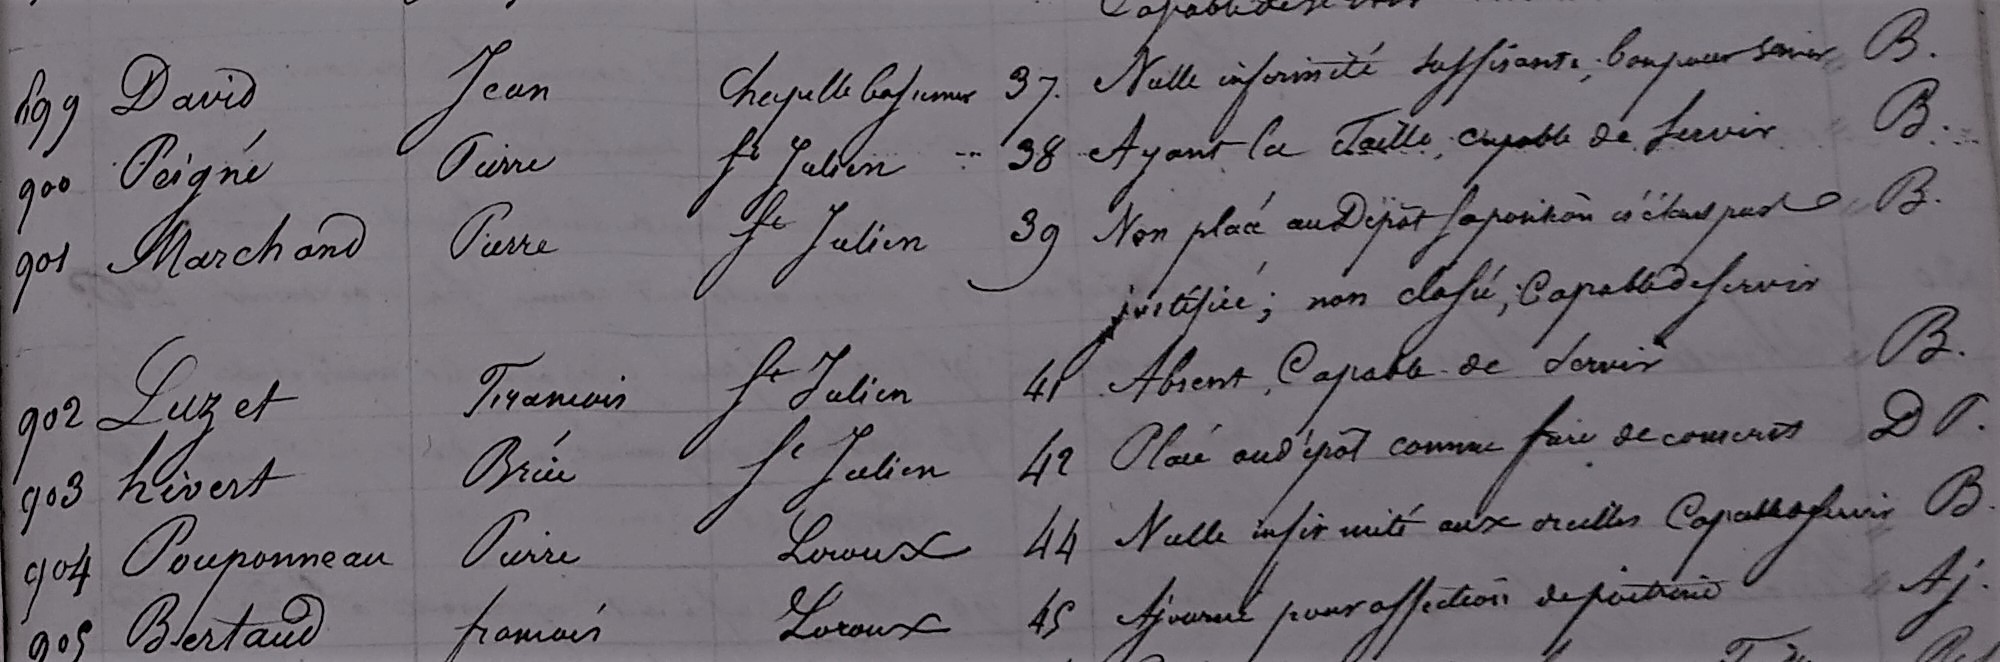 Capable de servir
899 David Jean Chapelle basse mer 37. Nulle infirmité suffisante; bon pour servir B.
900 Peigné Pierre St Julien 38 Ayant la Taille, capable de servir B.
901 Marchand Pierre St Julien 39 Non placé au Dépôt sa position n'étant pas B.
justifiée; non classé; Capable de servir
902 Luzet François St Julien 41 Absent, Capable de servir B.
903 hivert St Julien 42 Placé au dépôt comme frère de conscrit D
904 Pouponneau Pierre Loroux 44 Nulle infirmité aux oreilles Capable de servir B.
905 Bertaud françois Loroux 45 Ajourné pour affection de poitrine Aj.